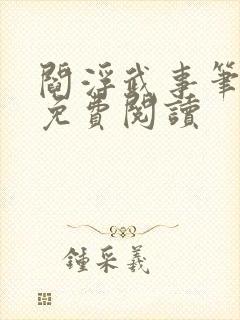 閻浮武事筆
免費閱讀
鍾采羲